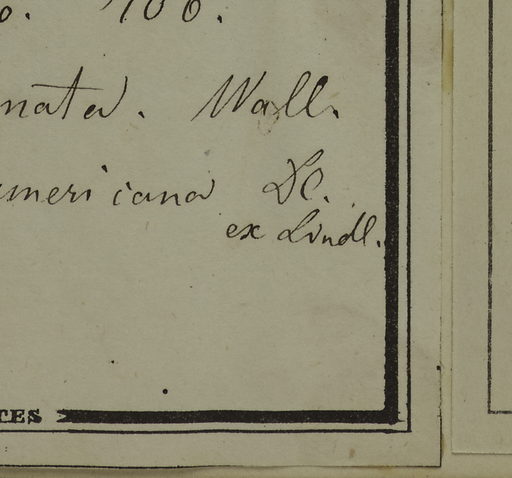 o. 706.
nata. Wall.
americana DC.
ex Lindl.
TES